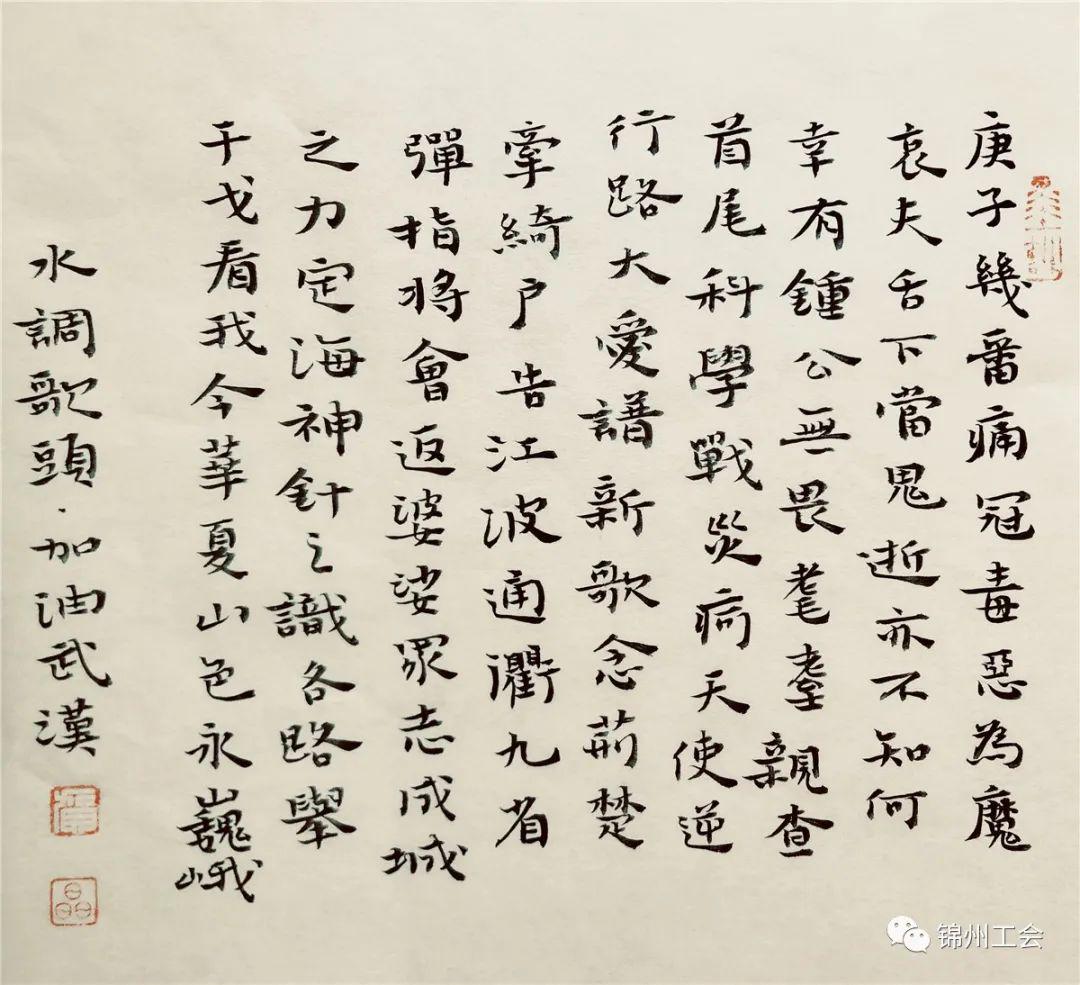 庚子幾番痛冠毒惡為魔
哀夫舌下當鬼逝亦不知何
幸有鍾公無畏耄耋親查
首尾科學戰災病天使逆
行路大愛譜新歌念荊楚
牽綺戶告江波通衢九省
彈指將會返婆娑眾志成城
之力定海神針之識各路舉
干戈看我今華夏山色永巍峨
水調歌頭·加油武漢
晶
锦州工会